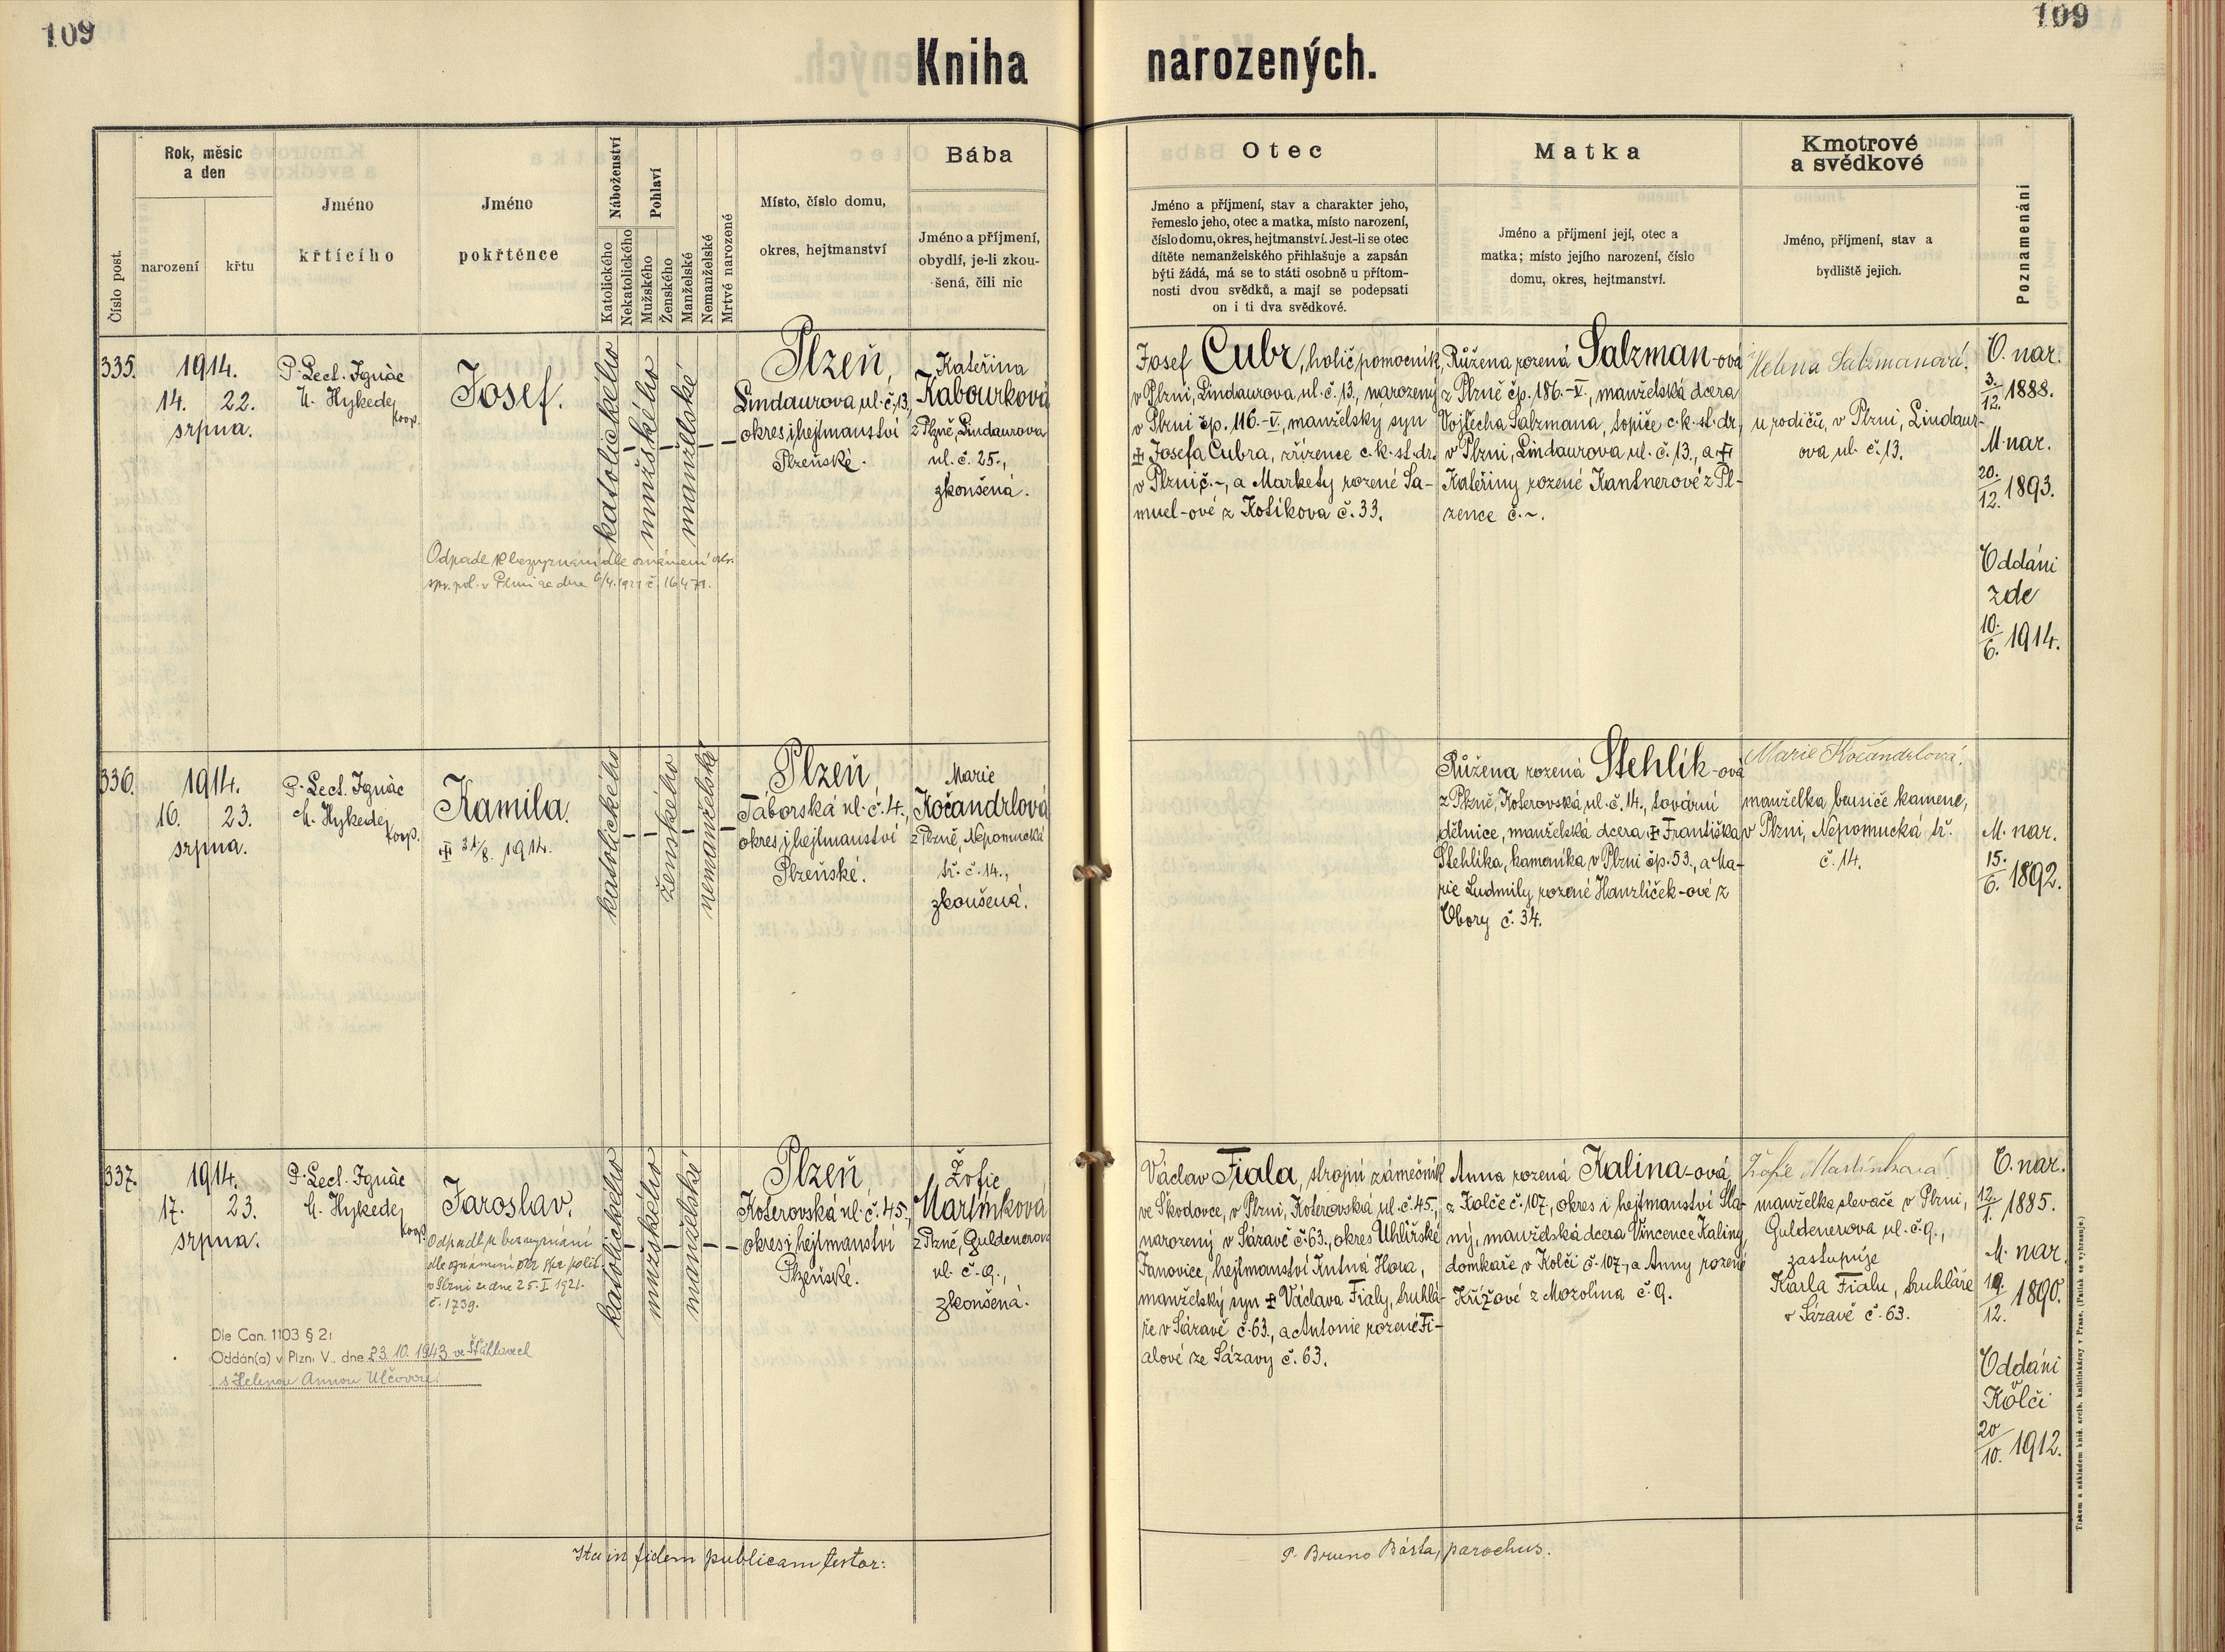 109
109
Kniha narozených.
Číslo post.
Rok, měsíc
a den
narození
křtu
Jméno
křtícího
Jméno
pokřtěnce
Náboženství
Katolického
Nekatolického
Pohlaví
Mužského
Ženského
Manželské
Nemanželské
Mrtvé narozené
Místo, číslo domu,
okres, hejtmanství
Bába
Jméno a příjmení,
obydlí, je-li zkou-
šená, čili nic
Otec
Jméno a příjmení, stav a charakter jeho,
řemeslo jeho, otec a matka, místo narození,
číslo domu, okres, hejtmanství. Jest-li se otec
dítěte nemanželského přihlašuje a zapsán
býti žádá, má se to státi osobně u přítom-
nosti dvou svědků, a mají se podepsati
on i ti dva svědkové.
Matka
Jméno a příjmení její, otec a
matka; místo jejího narození, číslo
domu, okres, hejtmanství.
Kmotrové
a svědkové
Jméno, příjmení, stav a
bydliště jejich.
Poznamenání
335.
1914.
14. 22.
srpna.
P. Lect. Ignác
Hykede
koop.
Josef.
katolického
mužského
manželské
Plzeň,
Lindaurova ul. č. 13,
okres i hejtmanství
Plzeňské.
Kateřina
Kabourková
z Plzně, Lindaurova
ul. č. 25.,
zkoušená.
Odpadl k bezvyznání dle oznámení
spr. pol. v Plzni ze dne 6/4. 1921 č. 16471.
Josef Cubr, holič. pomocník
v Plzni, Lindaurova ul. č. 13., narozený
v Plzni čp. 116.-V., manželský syn
Josefa Cubra, zřízence c. k. st. dr.
v Plzni č. ~, a Markety rozené Sa-
muel-ové z Kotíkova č. 33.
Růžena rozená Salzman-ová
z Plzně čp. 186.-V., manželská dcera
Vojtěcha Salzmana, topiče c. k. st. dr.
v Plzni, Lindaurova ul. č. 13., a
Kateřiny rozené Kantnerové z Pl-
zence č. ~.
Helena Salzmanová.
u rodičů, v Plzni, Lindaur-
ova ul. č. 13.
O. nar.
3./12. 1888.
M. nar.
20./12. 1893.
Oddáni
zde
10./6. 1914.
336.
1914.
16. 23.
srpna.
P. Lect. Ignác
Hykede
koop.
Kamila.
21/8. 1914.
katolického
ženského
nemanželské
Plzeň,
Táborská ul. č. 4.,
okres i hejtmanství
Plzeňské.
Marie
Kočandrlová
z Plzně, Nepomucká
tř. č. 14.,
zkoušená.
Růžena rozená Stehlík-ová
z Plzně, Koterovská ul. č. 14., tovární
dělnice, manželská dcera Františka
Stehlíka, kameníka v Plzni čp. 53., a Ma-
rie Ludmily rozené Hanzlíček-ové z
Obory č. 34.
Marie Kočandrlová.
manželka brusiče kamene,
v Plzni, Nepomucká tř.
č. 14.
M. nar.
15./6. 1892.
337.
1914.
17. 23.
srpna.
P. Lect. Ignác
Hykede
koop.
Jaroslav.
Odpadl k bezvyznání
dle oznámení spr. polit.
v Plzni ze dne 25. I 1921.
č. 1739.
Dle Can. 1103 § 2:
Oddán(a) v Plzni V., dne 23. 10. 1943 ve Šťáhlavech
s Helenou Annou Ulčovou.
katolického
mužského
manželské
Plzeň
Koterovská ul. č. 45.,
okres i hejtmanství
Plzeňské.
Žofie
Martínková
z Plzně, Guldenerova
ul. č. 9.,
zkoušená.
Václav Fiala, strojní zámečník
ve Škodovce, v Plzni, Koterovská ul. č. 45.,
narozený v Sázavě č. 63., okres Uhlířské
Janovice, hejtmanství Kutná Hora,
manželský syn Václava Fialy, truhlá-
ře v Sázavě č. 63., a Antonie rozené Fi-
alové ze Sázavy č. 63.
Anna rozená Kalina-ová
z Kolče č. 107., okres i hejtmanství Sla-
ný, manželská dcera Vincence Kaliny
domkaře v Kolči č. 107., a Anny rozené
Křížové z Mozolína č. 9.
Žofie Martínková
manželka slevače v Plzni,
Guldenerova ul. č. 9.,
zastupuje
Karla Fialu, truhláře
v Sázavě č. 63.
O. nar.
12./1. 1885.
M. nar.
19./12. 1890.
Oddáni
v
Kolči
20/10. 1912.
Ita in fidem publicam testor:
P. Bruno Bárta, parochus.